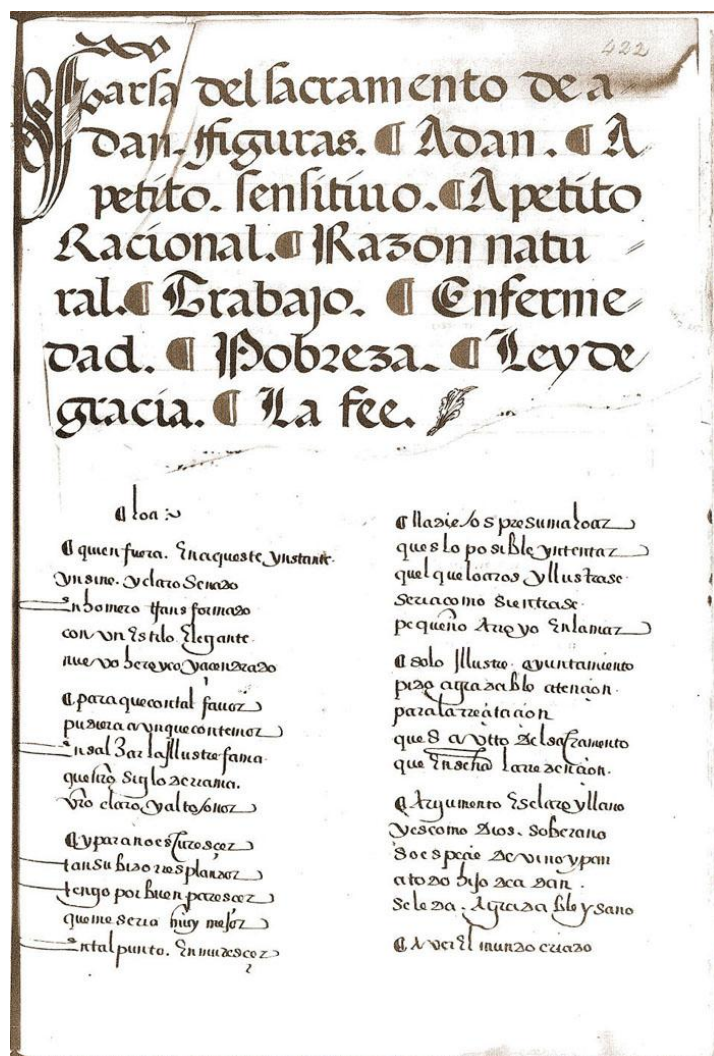 422
Farsa del sacramento de a
dan. ffiguras. ¶ Adan. ¶ A
petito. sensitiuo. ¶ Apetito
Racional. ¶ Razon natu
ral. ¶ Trabajo. ¶ Enferme
dad. ¶ Pobreza. ¶ Ley de
gracia. ¶ La fee.
¶ loa :~
¶ quien fuera. En aqueste ynstante.
ynsine. y claro Senado
En homero transformado
con vn Estilo Elegante.
nuevo heroyco y acendrado
¶ para que con tal fauor
pudiera avnque con temor
Ensalzar la Jllustre fama
que nro Siglo derrama.
vro claro y alto honor
¶ y para no escurescer
tan subido rresplandor
tengo por buen parescer
que me seria muy mejor
En tal punto. Enmudescer
¶ Nadie los presuma loar
ques lo posible yntentar
quel que loaros yllustrase.
seria como si entrase.
pequeño Arroyo En la mar
¶ solo Jllustre. ayuntamiento
pido agradable atencion.
para la rrecitacion
ques avtto del sacramento
que Enseña la rredencion.
¶ Argumento Es claro y llano
y es como Dios. soberano
so especie de vino y pan
a todo hijo de adan.
se le da. Agradable y sano
¶ A ver El mundo criado